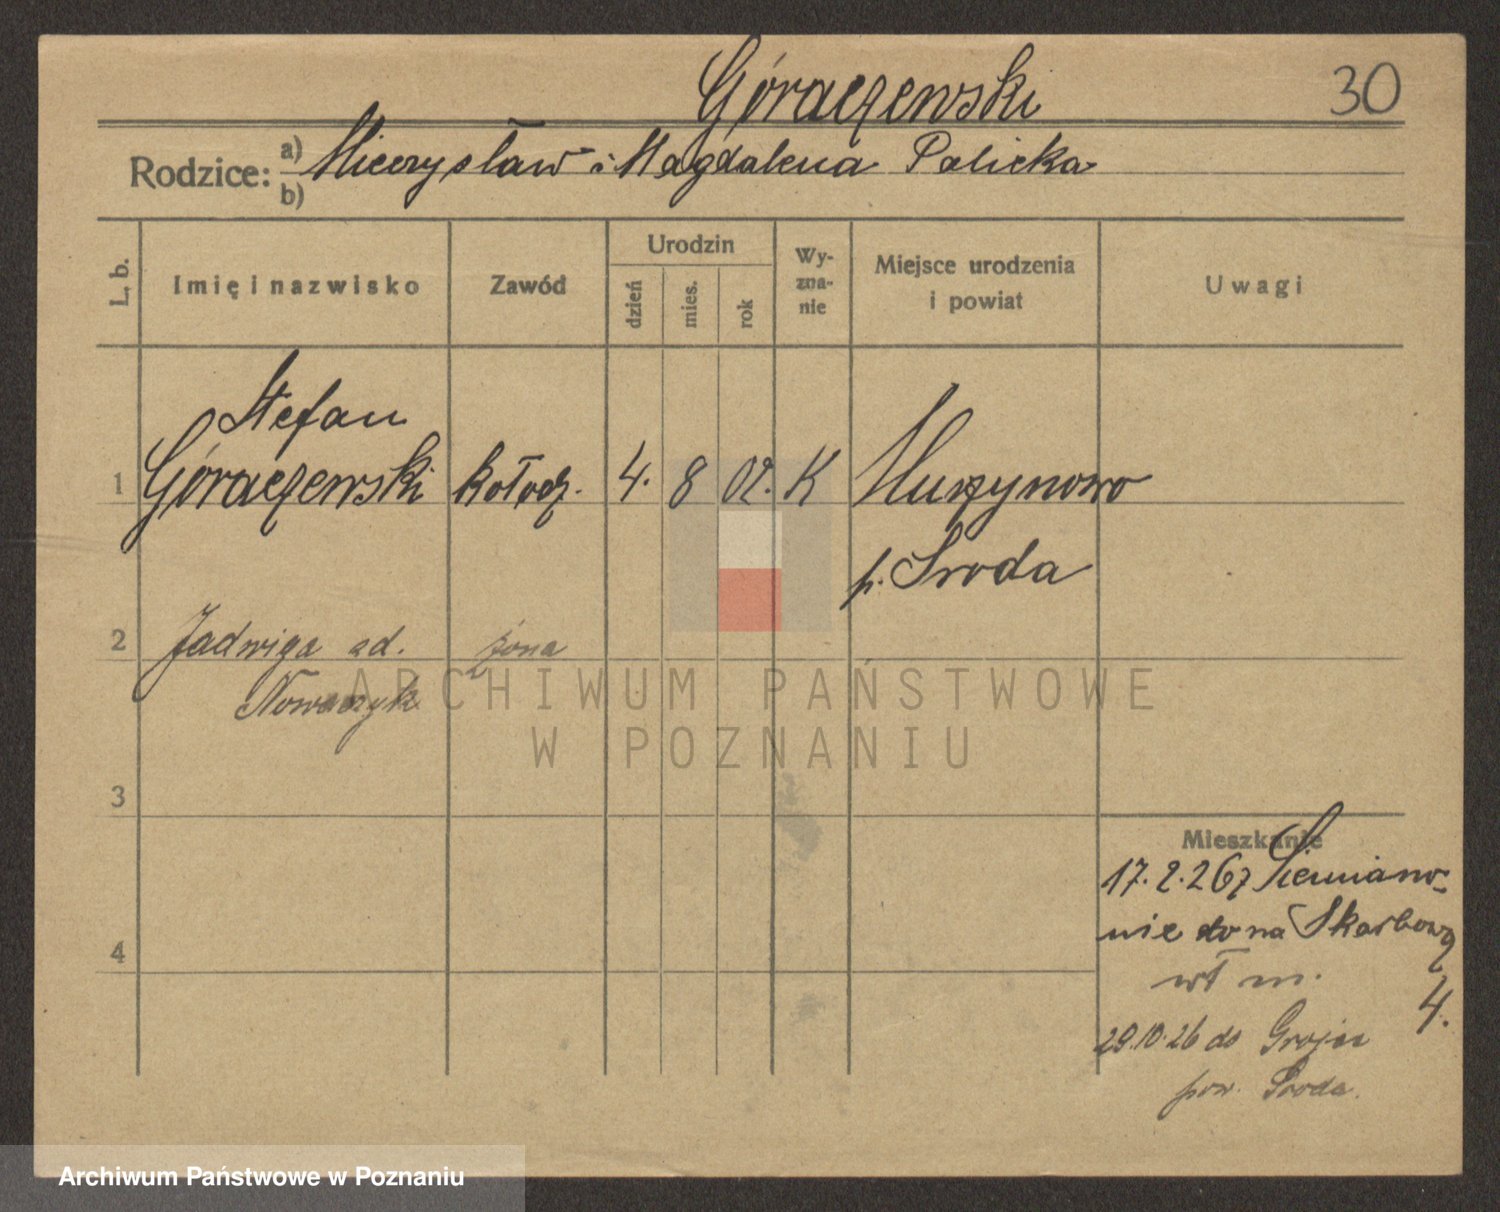 Góraczewski
30
Rodzice: a) Mieczysław i Magdalena Palicka
b)
L. b.
Imię i nazwisko
Zawód
Urodzin
dzień
mies.
rok
Wy-
zna-
nie
Miejsce urodzenia
i powiat
Uwagi
Stefan
1 Góraczewski kołodz. 4. 8 02. K Murzynowo
p. Sroda
2 Jadwiga zd. żona
Nowaczyk
3
4
Mieszkanie
17.2.26 z Siemiano-
nie do na Skarbową
wł m. 4.
29.10.26 do
pow. Sroda.
ARCHIWUM PAŃSTWOWE
W POZNANIU
Archiwum Państwowe w Poznaniu